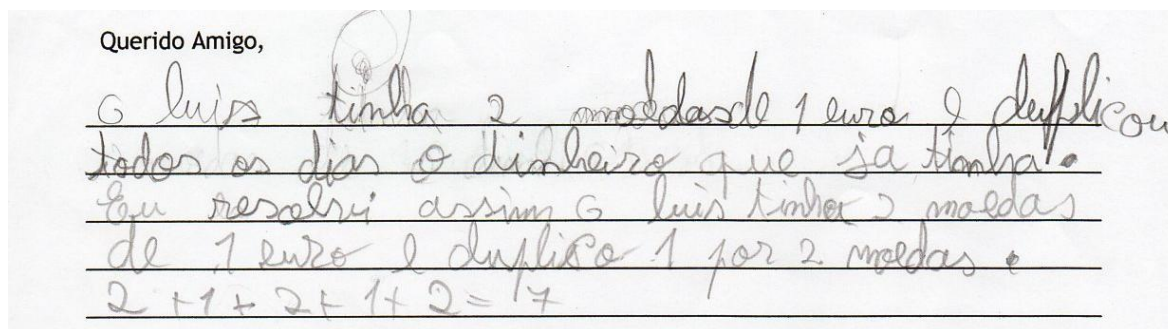 Querido Amigo,
O luis tinha 2 moedas de 1 euro e duplicou
todos os dias o dinheiro que ja tinha.
Eu resolvi assim O luis tinha 2 moedas
de 1 euro e duplico 1 por 2 moedas.
2 + 1 + 2 + 1 + 2 = 17